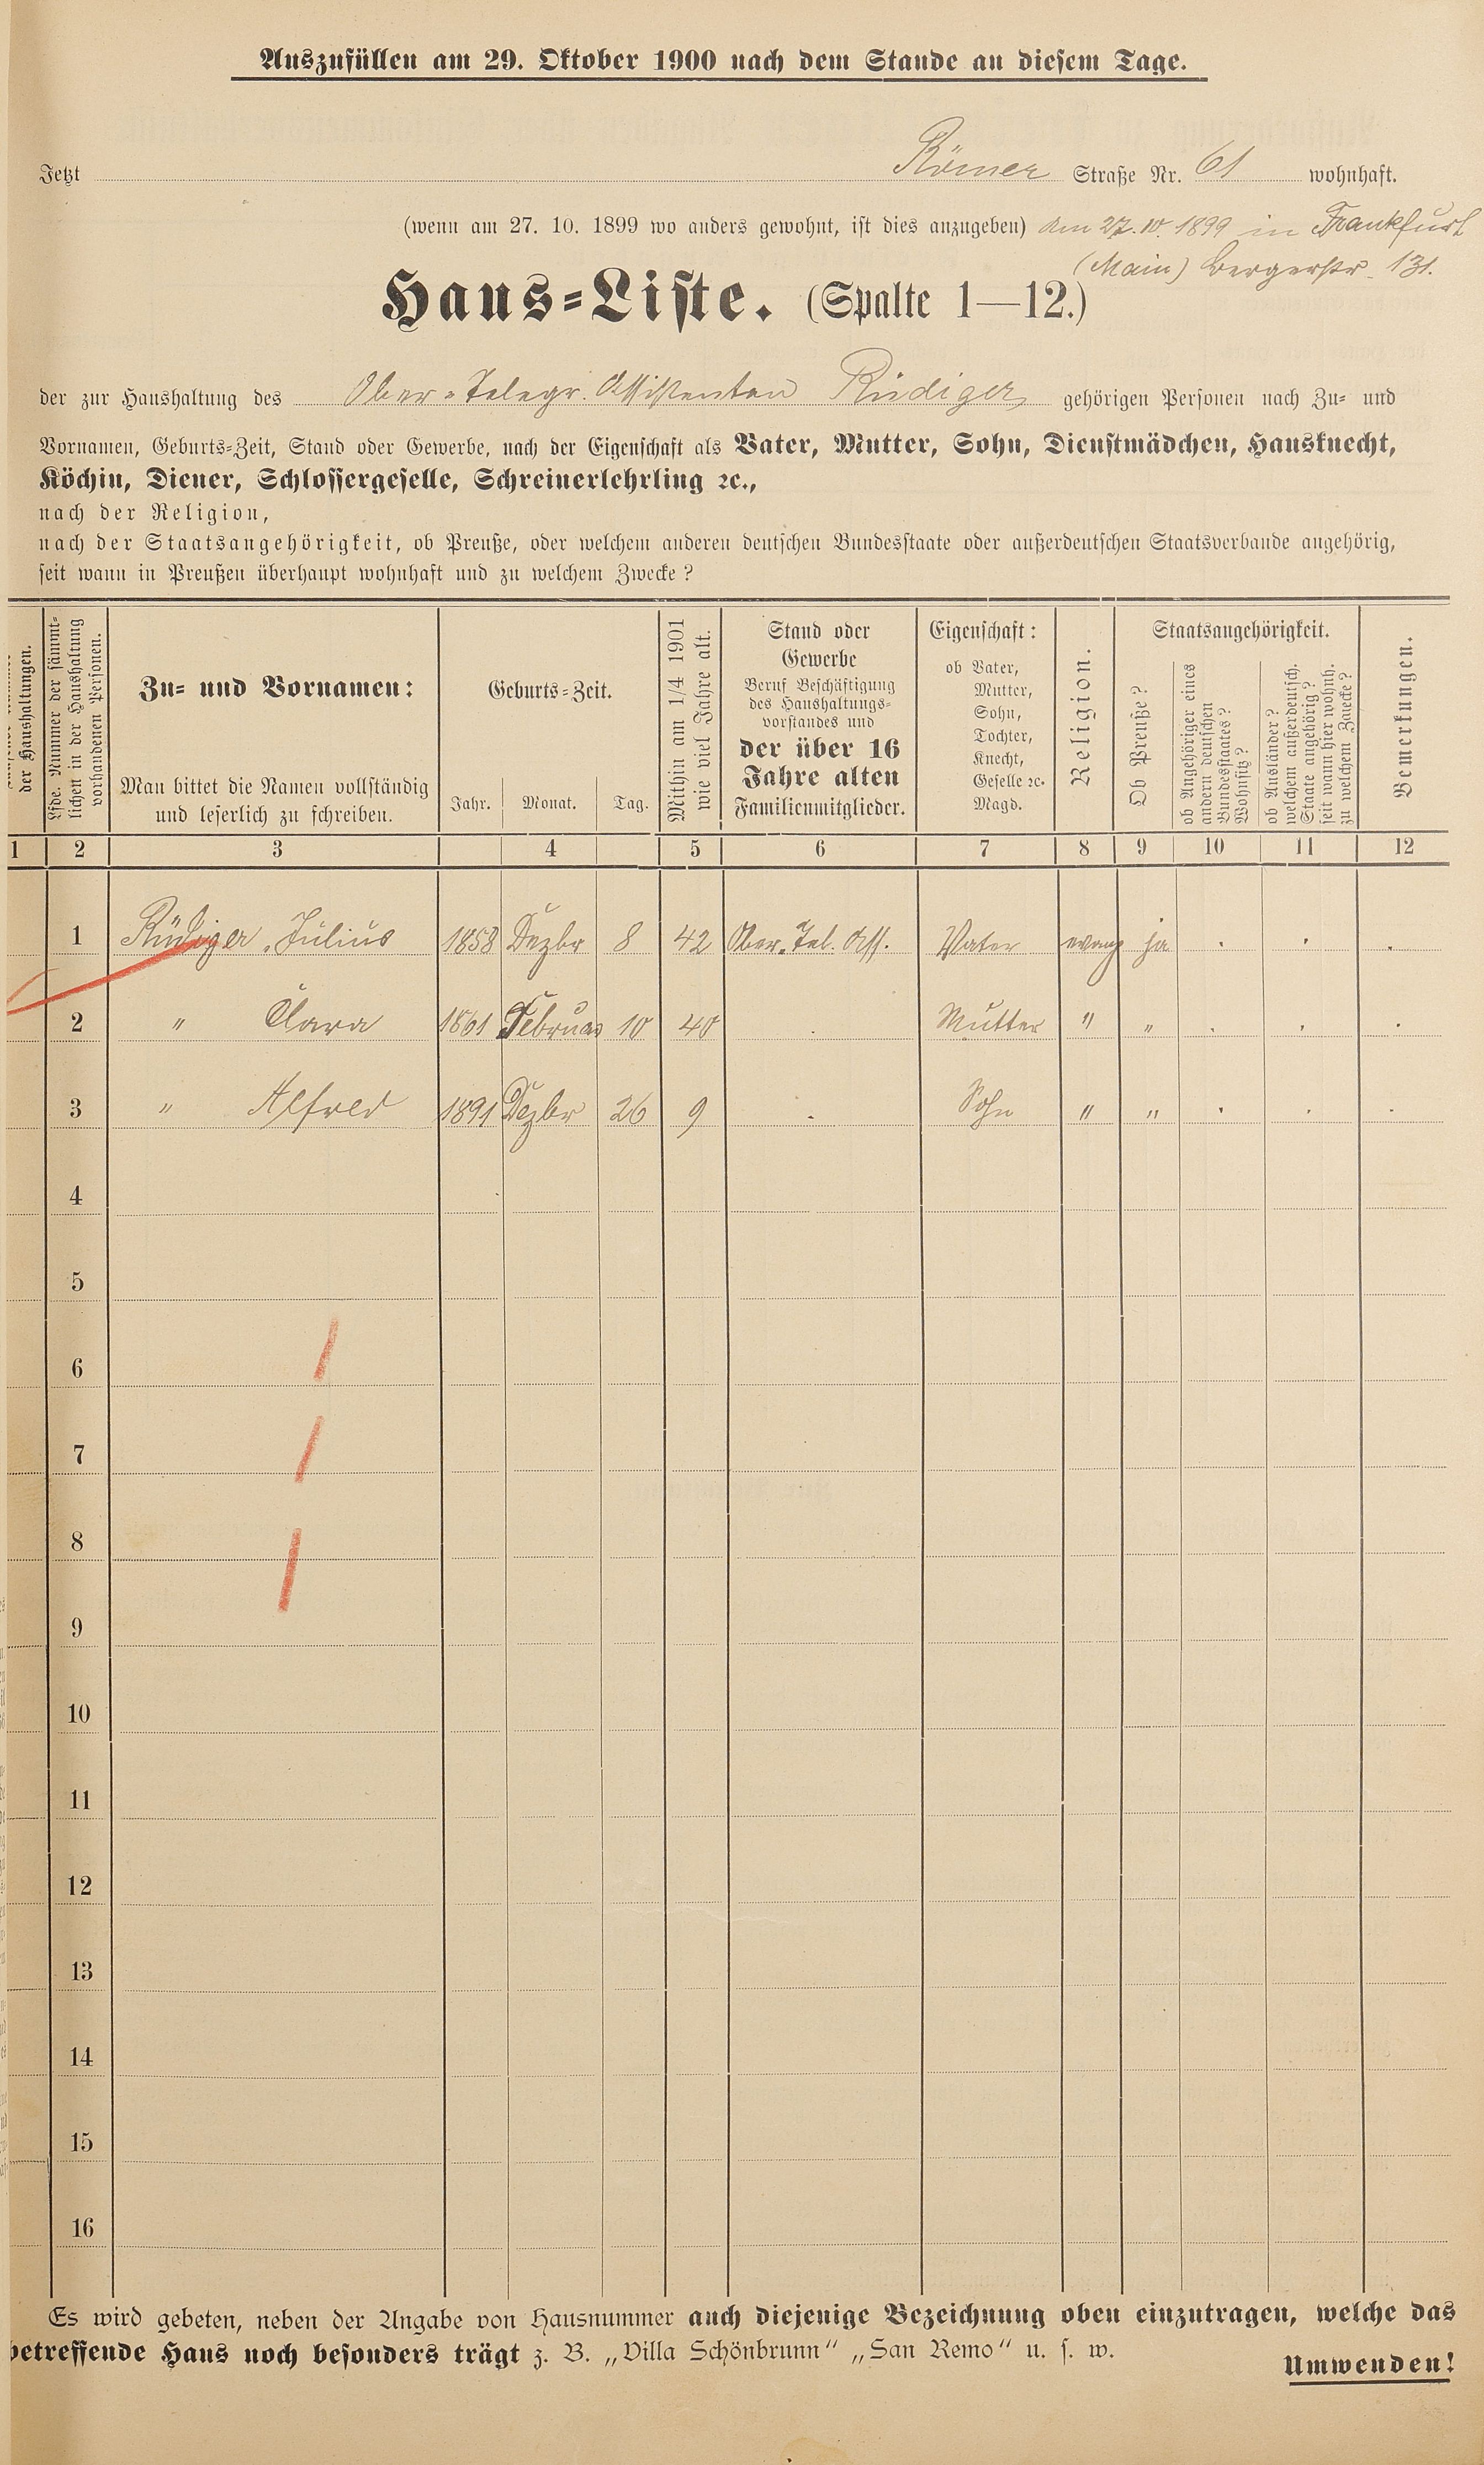 Auszufüllen am 29. Oktober 1900 nach dem Stande an diesem Tage.
Jetzt Römer Straße Nr. 61 wohnhaft.
(wenn am 27. 10. 1899 wo anders gewohnt, ist dies anzugeben) Am 27. 10. 1899 in Frankfurt
(Main) Bergerstr. 131.
Haus-Liste. (Spalte 1—12.)
der zur Haushaltung des Ober-Telegr. Assistenten Rüdiger gehörigen Personen nach Zu- und
Vornamen, Geburts-Zeit, Stand oder Gewerbe, nach der Eigenschaft als Vater, Mutter, Sohn, Dienstmädchen, Hausknecht,
Köchin, Diener, Schlossergeselle, Schreinerlehrling ꝛc.,
nach der Religion,
nach der Staatsangehörigkeit, ob Preuße, oder welchem anderen deutschen Bundesstaate oder außerdeutschen Staatsverbande angehörig,
seit wann in Preußen überhaupt wohnhaft und zu welchem Zwecke?
der Haushaltungen.
Lfde. Nummer der sämmt-
lichen in der Haushaltung
vorhandenen Personen.
Zu- und Vornamen:
Man bittet die Namen vollständig
und leserlich zu schreiben.
Geburts-Zeit.
Jahr. Monat. Tag.
Mithin am 1/4 1901
wie viel Jahre alt.
Stand oder
Gewerbe
Beruf Beschäftigung
des Haushaltungs-
vorstandes und
der über 16
Jahre alten
Familienmitglieder.
Eigenschaft:
ob Vater,
Mutter,
Sohn,
Tochter,
Knecht,
Geselle ꝛc.
Magd.
Religion.
Staatsangehörigkeit.
Ob Preuße?
ob Angehöriger eines
andern deutschen
Bundesstaates?
Wohnsitz?
ob Ausländer?
welchem außerdeutsch.
Staate angehörig?
seit wann hier wohnh.
zu welchem Zwecke?
Bemerkungen.
1 2 3 4 5 6 7 8 9 10 11 12
1 Rüdiger, Julius 1858 Dezbr 8 42 Ober-Tel. Ass. Vater evang ja . . .
2 " Clara 1861 Februar 10 40 . Mutter " " . . .
3 " Alfred 1891 Dezbr 26 9 . Sohn " " . . .
4
5
6
7
8
9
10
11
12
13
14
15
16
Es wird gebeten, neben der Angabe von Hausnummer auch diejenige Bezeichnung oben einzutragen, welche das
betreffende Haus noch besonders trägt z. B. „Villa Schönbrunn“ „San Remo“ u. s. w.
Umwenden!